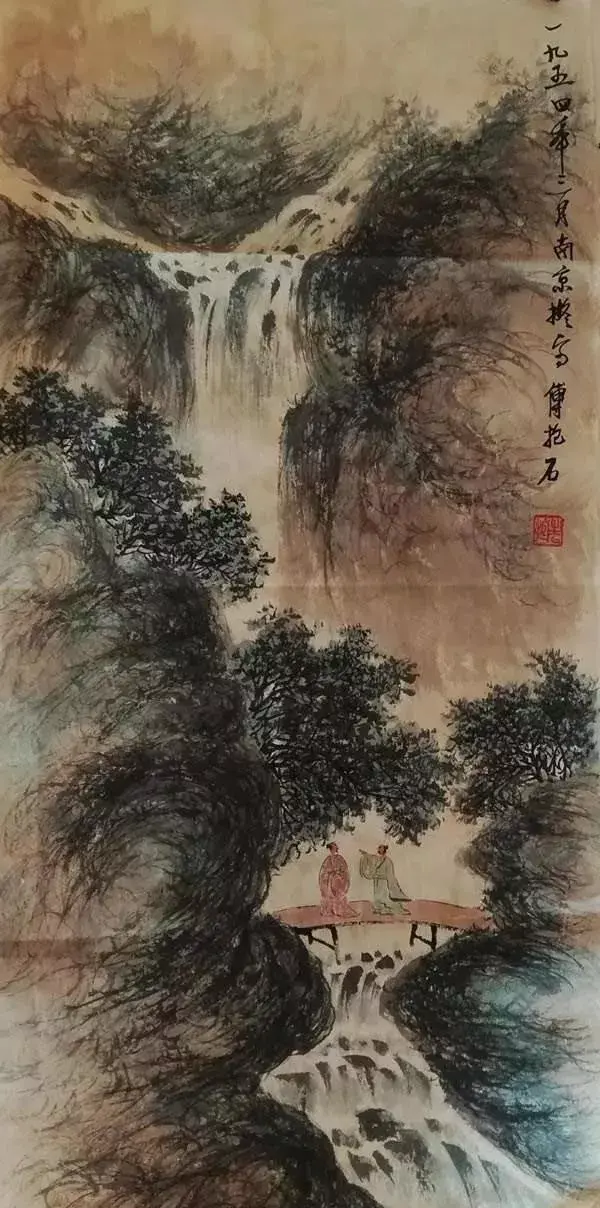 一九五四年三月南京拟写 傅抱石